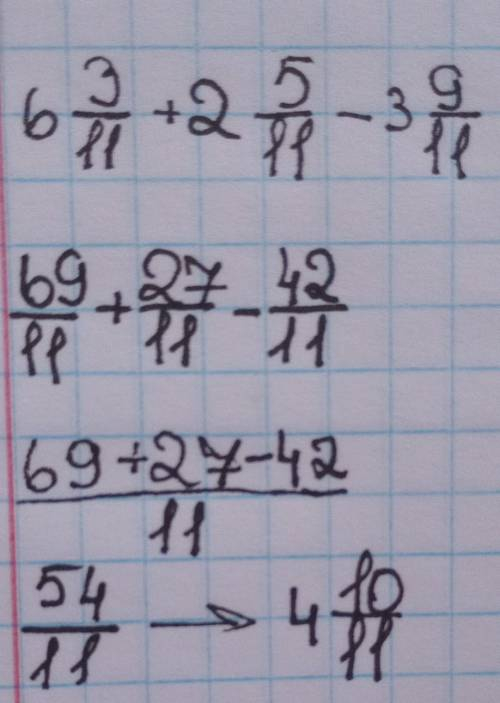 6 3/11 + 2 5/11 - 3 9/11
69/11 + 27/11 - 42/11
69+27-42/11
54/11 → 4 10/11